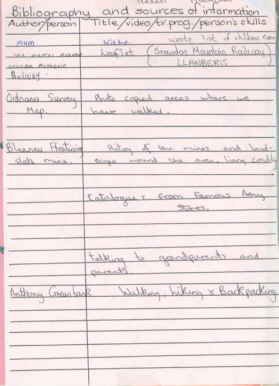 Bibliography and sources of information
Author/person Title/video/tv prog/person's skills
mum wrote list of children
Leaflet (Snowdon Mountain Railway)
Railway. LLANBERIS
Ordnance Survey Photo copied areas where we
Map. have walked.
Blaenau Ffestiniog History of slate mines and land-
slate mine. scape around the area, living
Catalogues from Famous Army
Stores.
talking to grandparents and
parents
Anthony Greenbank Walking, hiking & Backpacking